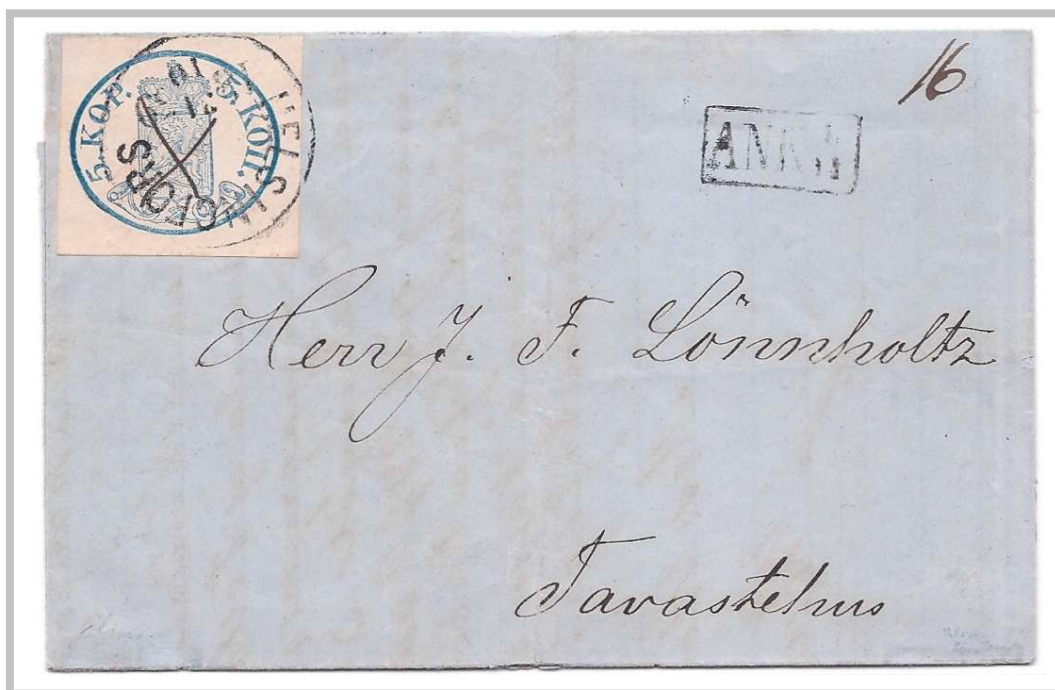 5. KOP. 5. КОП.
HELSINGFORS
16
ANK
Herr J. F. Lönnholtz
Tavastehus